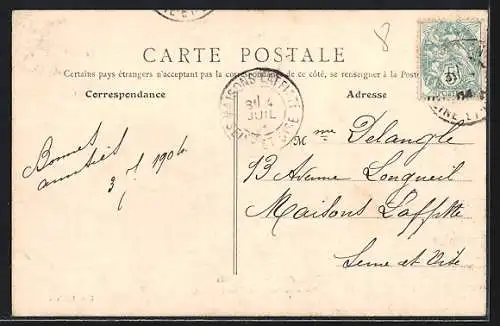 CARTE POSTALE
Certains pays étrangers n'acceptant pas la correspondance de ce côté, se renseigner à la Poste
Correspondance
Adresse
8
MAISONS LAFFITTE
JUIL
SEINE ET OISE
Bonnes
amitiés
1904
Mme Delangle
13 Avenue Longueil
Maisons Laffitte
Seine et Oise